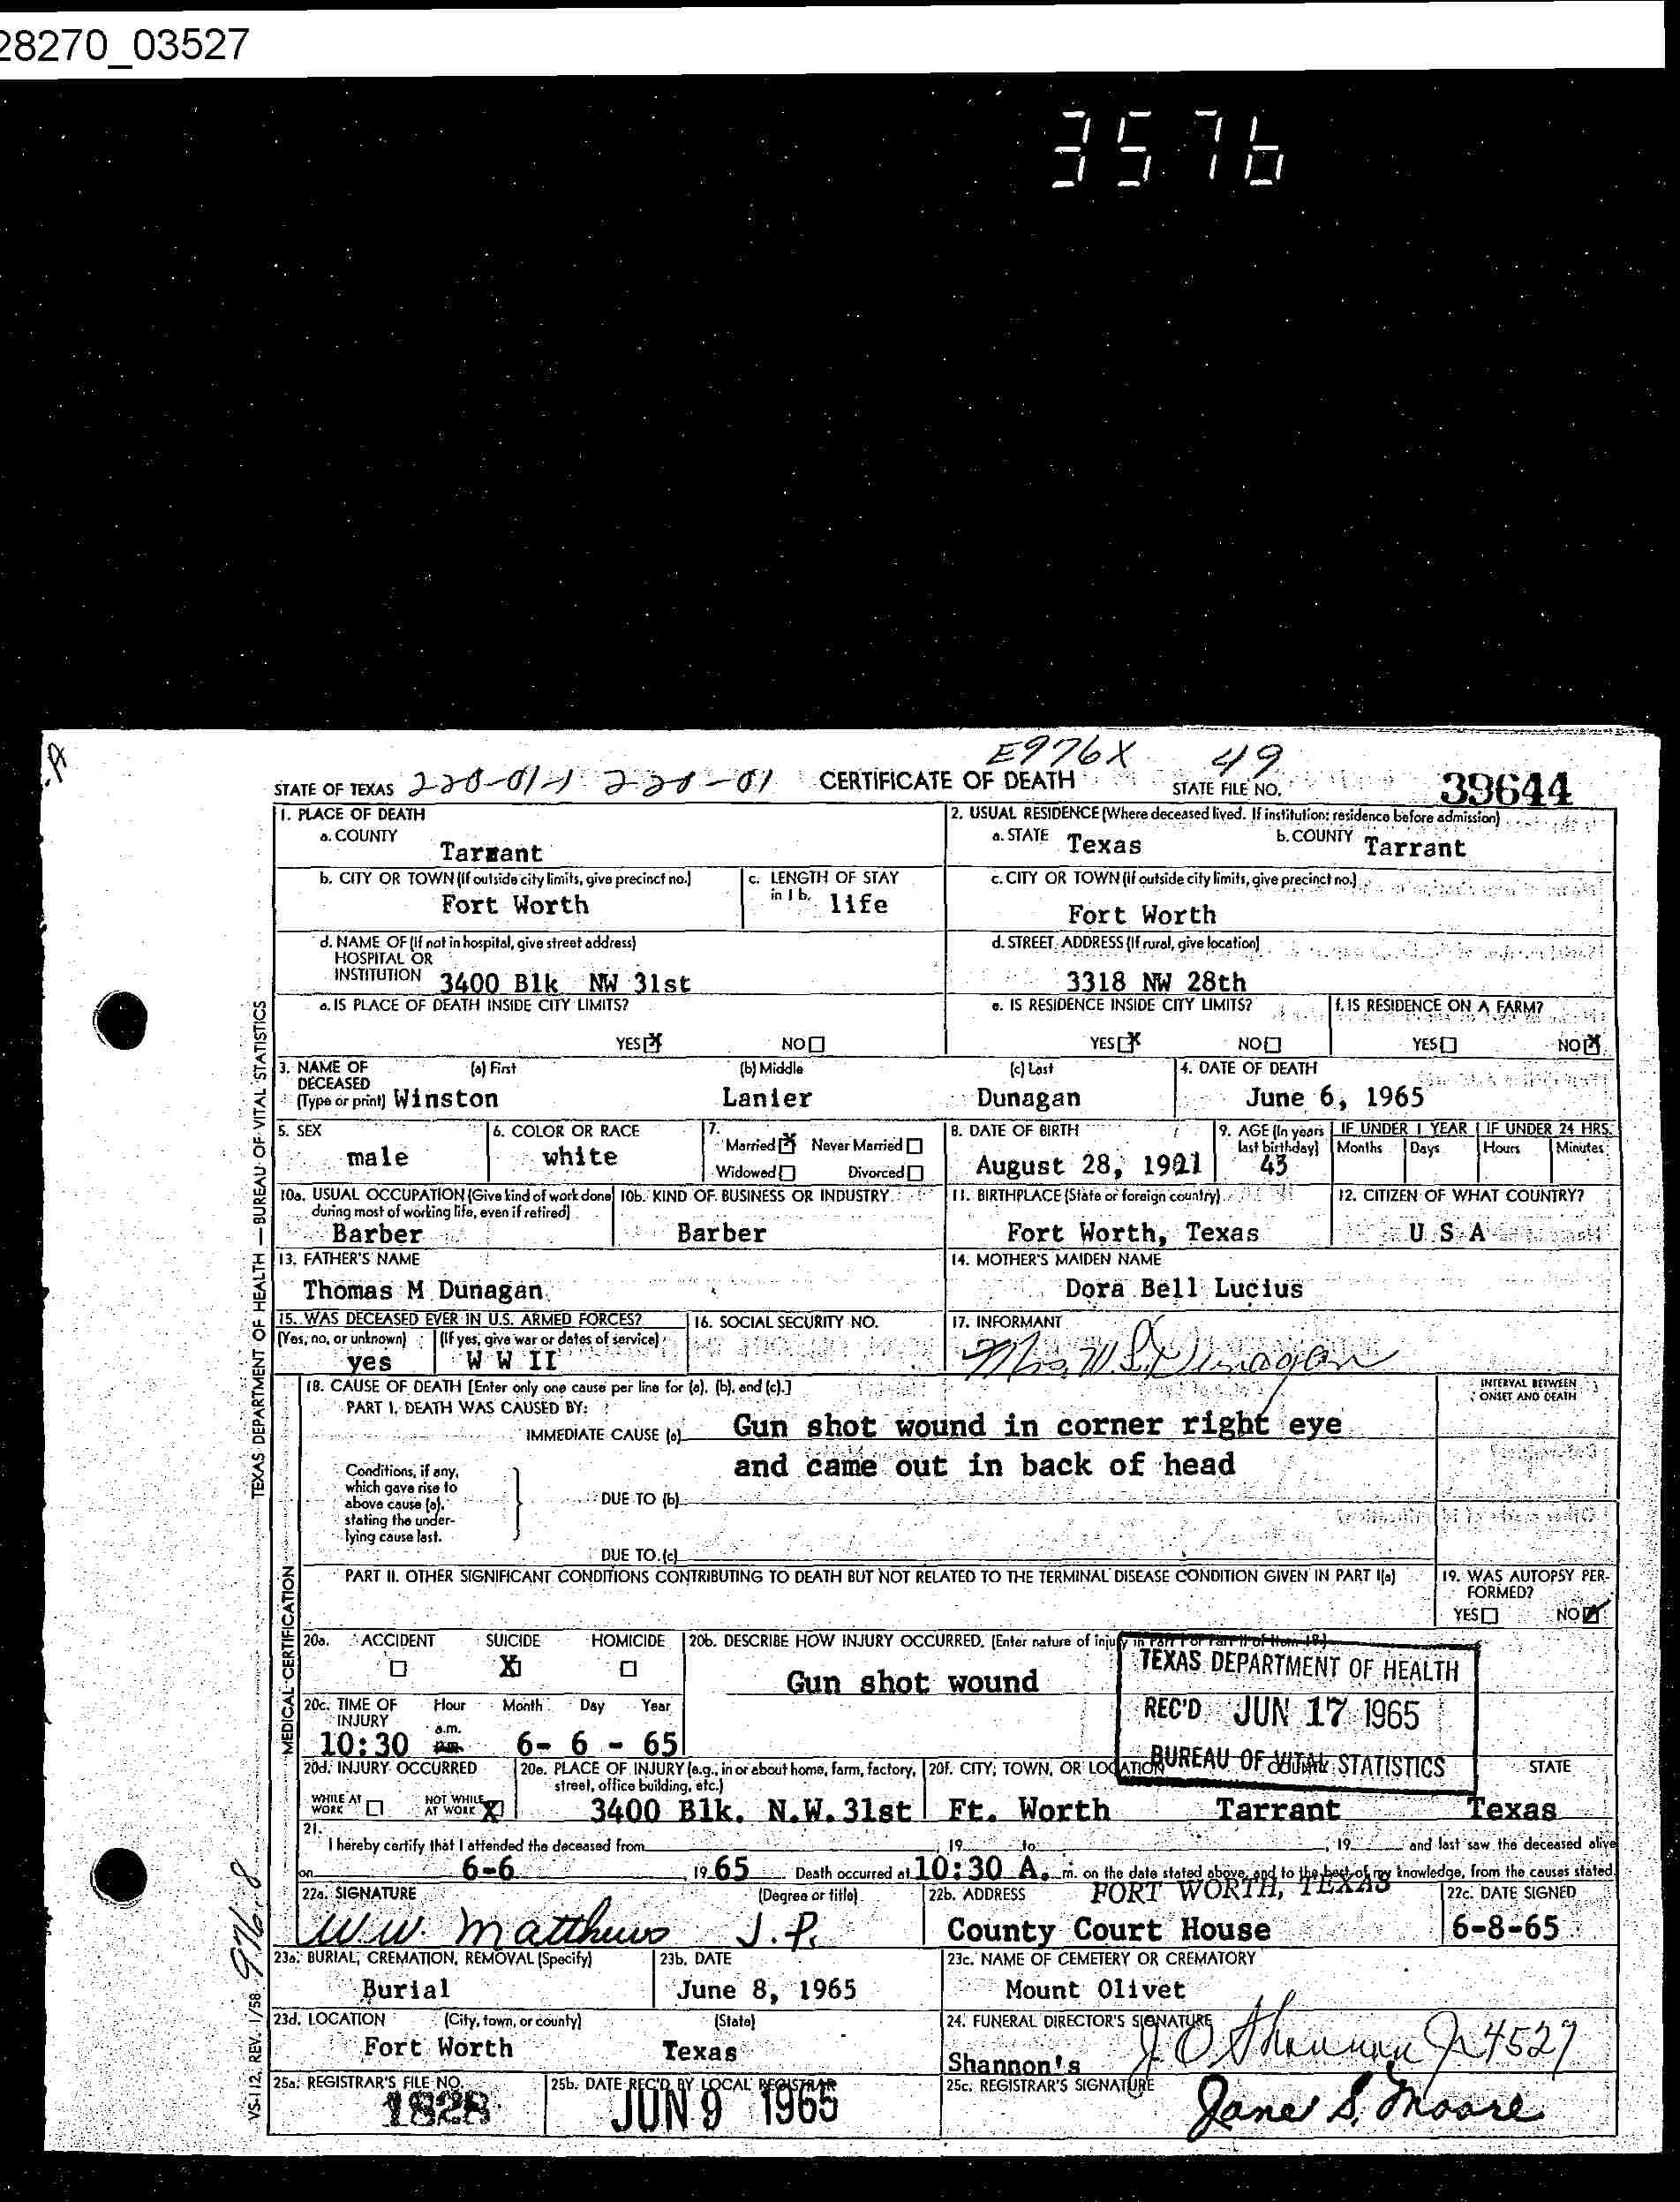 28270_03527
3576
E976X 49
STATE OF TEXAS 220-01-1 220-01 CERTIFICATE OF DEATH STATE FILE NO. 39644
1. PLACE OF DEATH
a. COUNTY
Tarrant
2. USUAL RESIDENCE (Where deceased lived. If institution: residence before admission)
a. STATE Texas b. COUNTY Tarrant
b. CITY OR TOWN (If outside city limits, give precinct no.)
Fort Worth
c. LENGTH OF STAY
in 1 b. life
c. CITY OR TOWN (If outside city limits, give precinct no.)
Fort Worth
d. NAME OF (If not in hospital, give street address)
HOSPITAL OR
INSTITUTION 3400 Blk NW 31st
d. STREET ADDRESS (If rural, give location)
3318 NW 28th
e. IS PLACE OF DEATH INSIDE CITY LIMITS?
YES X NO
e. IS RESIDENCE INSIDE CITY LIMITS?
YES X NO
f. IS RESIDENCE ON A FARM?
YES NO X
3. NAME OF
DECEASED
(Type or print)
(a) First (b) Middle (c) Last
Winston Lanier Dunagan
4. DATE OF DEATH
June 6, 1965
5. SEX
male
6. COLOR OR RACE
white
7.
Married X Never Married
Widowed Divorced
8. DATE OF BIRTH
August 28, 1921
9. AGE (In years
last birthday)
43
IF UNDER 1 YEAR
Months Days
IF UNDER 24 HRS.
Hours Minutes
10a. USUAL OCCUPATION (Give kind of work done
during most of working life, even if retired)
Barber
10b. KIND OF BUSINESS OR INDUSTRY
Barber
11. BIRTHPLACE (State or foreign country)
Fort Worth, Texas
12. CITIZEN OF WHAT COUNTRY?
U S A
13. FATHER'S NAME
Thomas M Dunagan
14. MOTHER'S MAIDEN NAME
Dora Bell Lucius
15. WAS DECEASED EVER IN U.S. ARMED FORCES?
(Yes, no, or unknown) (If yes, give war or dates of service)
yes W W II
16. SOCIAL SECURITY NO.
17. INFORMANT
Mrs. W. L. Dunagan
18. CAUSE OF DEATH [Enter only one cause per line for (a), (b), and (c).]
PART I. DEATH WAS CAUSED BY:
IMMEDIATE CAUSE (a) Gun shot wound in corner right eye
and came out in back of head
INTERVAL BETWEEN
ONSET AND DEATH
Conditions, if any,
which gave rise to
above cause (a),
stating the under-
lying cause last.
DUE TO (b)
DUE TO (c)
PART II. OTHER SIGNIFICANT CONDITIONS CONTRIBUTING TO DEATH BUT NOT RELATED TO THE TERMINAL DISEASE CONDITION GIVEN IN PART I(a)
19. WAS AUTOPSY PER-
FORMED?
YES NO X
20a. ACCIDENT SUICIDE HOMICIDE
X
20b. DESCRIBE HOW INJURY OCCURRED. (Enter nature of injury in Part I or Part II of Item 18.)
Gun shot wound
TEXAS DEPARTMENT OF HEALTH
REC'D JUN 17 1965
BUREAU OF VITAL STATISTICS
20c. TIME OF
INJURY
Hour Month Day Year
a.m.
p.m.
10:30 6- 6 - 65
20d. INJURY OCCURRED
WHILE AT
WORK
NOT WHILE
AT WORK X
20e. PLACE OF INJURY (e.g., in or about home, farm, factory,
street, office building, etc.)
3400 Blk. N.W. 31st
20f. CITY, TOWN, OR LOCATION COUNTY STATE
Ft. Worth Tarrant Texas
21.
I hereby certify that I attended the deceased from 19 to 19 and last saw the deceased alive
on 6-6 1965 Death occurred at 10:30 A. m. on the date stated above, and to the best of my knowledge, from the causes stated.
22a. SIGNATURE (Degree or title)
W.W. Matthews J.P.
22b. ADDRESS FORT WORTH, TEXAS
County Court House
22c. DATE SIGNED
6-8-65
23a. BURIAL, CREMATION, REMOVAL (Specify)
Burial
23b. DATE
June 8, 1965
23c. NAME OF CEMETERY OR CREMATORY
Mount Olivet
23d. LOCATION (City, town, or county) (State)
Fort Worth Texas
24. FUNERAL DIRECTOR'S SIGNATURE
Shannon's J O Shannon Jr 4527
25a. REGISTRAR'S FILE NO.
1828
25b. DATE REC'D BY LOCAL REGISTRAR
JUN 9 1965
25c. REGISTRAR'S SIGNATURE
Jane S. Moore
TEXAS DEPARTMENT OF HEALTH — BUREAU OF VITAL STATISTICS
MEDICAL CERTIFICATION
VS-112, REV. 1/58 976.8